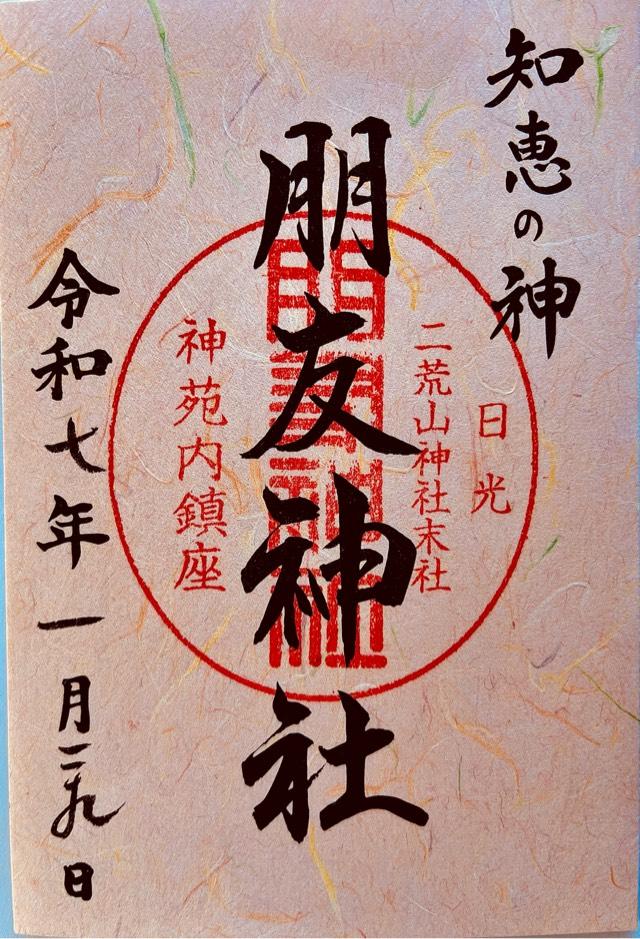 知恵の神
日光
二荒山神社末社
朋友神社
神苑内鎮座
令和七年一月二十九日